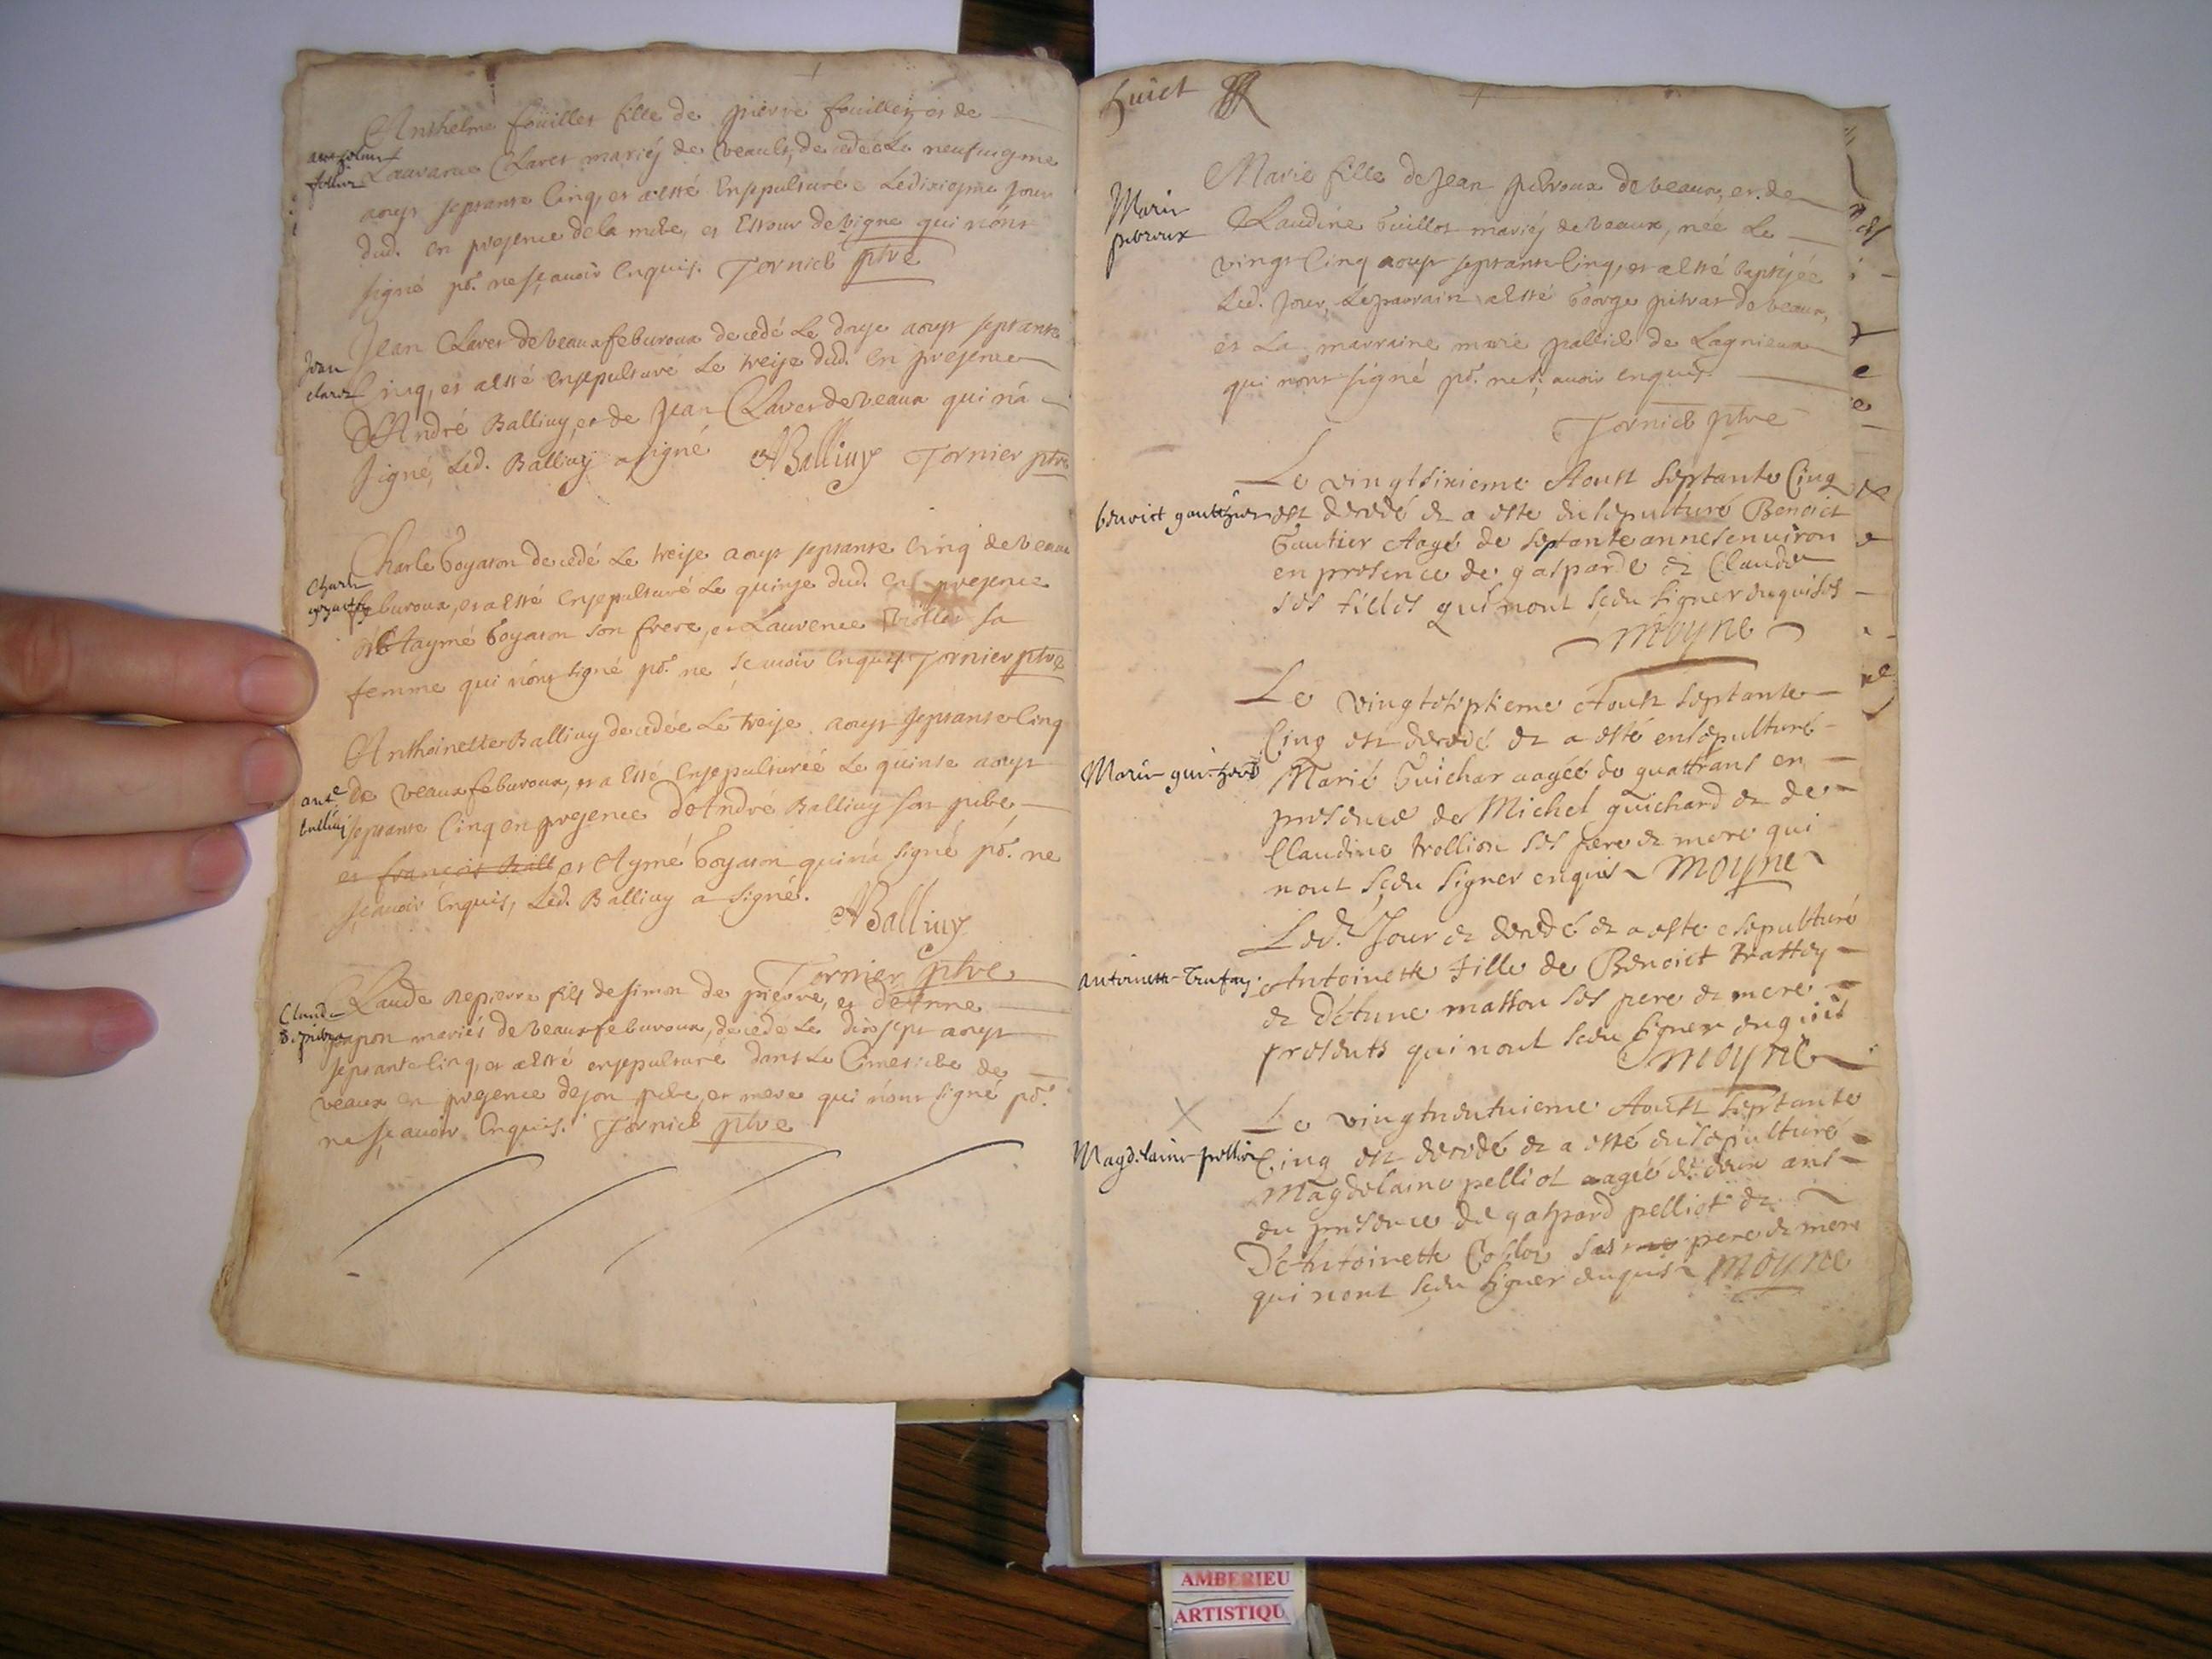 Anthelme fouillet fille de pierre fouillet, et de
Claret mariéz de veault, decedée le neufiugme
aoust septante cinq, et a esté ensepulturée le dixiegme jour
dud. en presence de la mere, et Estour devigne qui n'ont
signé po.r ne sçavoir enquis. Tornier ptre
Jean
claret
Jean Claret de veaux febvroux decedé le douze aoust septante
cinq, et a esté ensepulturé le treize dud. en presence
d'André Balliuy, et de Jean Claret de veaux qui n'a
signé, led. Balliuy a signé ABalliuy Tornier ptre
Charle
Charle Goyaton decedé le treize aoust septante cinq de veaux
feburoux, et a esté ensepulturé le quinze dud. en presence
de Aymé Goyaton son frere, et Laurence sa
femme qui n'ont signé po.r ne sçavoir enquis Tornier ptre
ant.e
balliuy
Anthoinette Balliuy decedée le treize aoust septante cinq
de veaux feburoux, et a esté ensepulturée le quinse aoust
septante cinq en presence d'André Balliuy son pere
et françois et Aymé Goyaton qui n'a signé po.r ne
sçavoir enquis, led. Balliuy a signé.
ABalliuy
Tornier ptre
Claude
depierre
Claude depierre fils de simon de pierre, et de Anne
papon mariés de veaux feburoux, decedé le dixsept aoust
septante cinq, et a esté ensepulturé dans le Cimetiere de
veaux en presence de son pere, et mere qui n'ont signé po.r
ne sçavoir enquis. Tornier ptre
huict
Marie
peroux
Marie fille de Jean peroux de veaux, et de
Claudine Guillot mariéz de veaux, née le
vingt cinq aoust septante cinq, et a esté baptisée
led. jour, le parrain a esté George de veaux,
et la marraine marie pallier de Lagnieux
qui n'ont signé po.r ne sçavoir enquis.
Tornier ptre
benoict gauthier
Le vingtsixieme Aoust septante Cinq
est decedé et a esté ensepulturé Benoict
Gautier Aagé de septante annes environ
en presence de gasparde et Claude
ses filles qui nont sçeu signer enquises
Moyne
Marie guichard
Le vingtseptieme Aoust septante
Cinq est decedé et a esté ensepulturé
Marie Guichar aagée de quattrans en
presence de Michel guichard et de
Claudine trollion ses pere et mere qui
nont sçeu signer enquis Moyne
antoinette
Led.t jour est decedé et a este esepulturé
Antoinette fille de Benoict
et d'etiene masson ses pere et mere
presents qui nont sceu signer enquis
Moyne
Magdelaine pelliot
Le vingthuitieme Aoust septante
Cinq est decedé et a esté ensepulturé
Magdelaine pelliot aagée de deux ans
en presence de gaspard pelliot et
D'Antoinette ses pere et mere
qui nont sceu signer enquis Moyne
AMBERIEU
ARTISTIQU